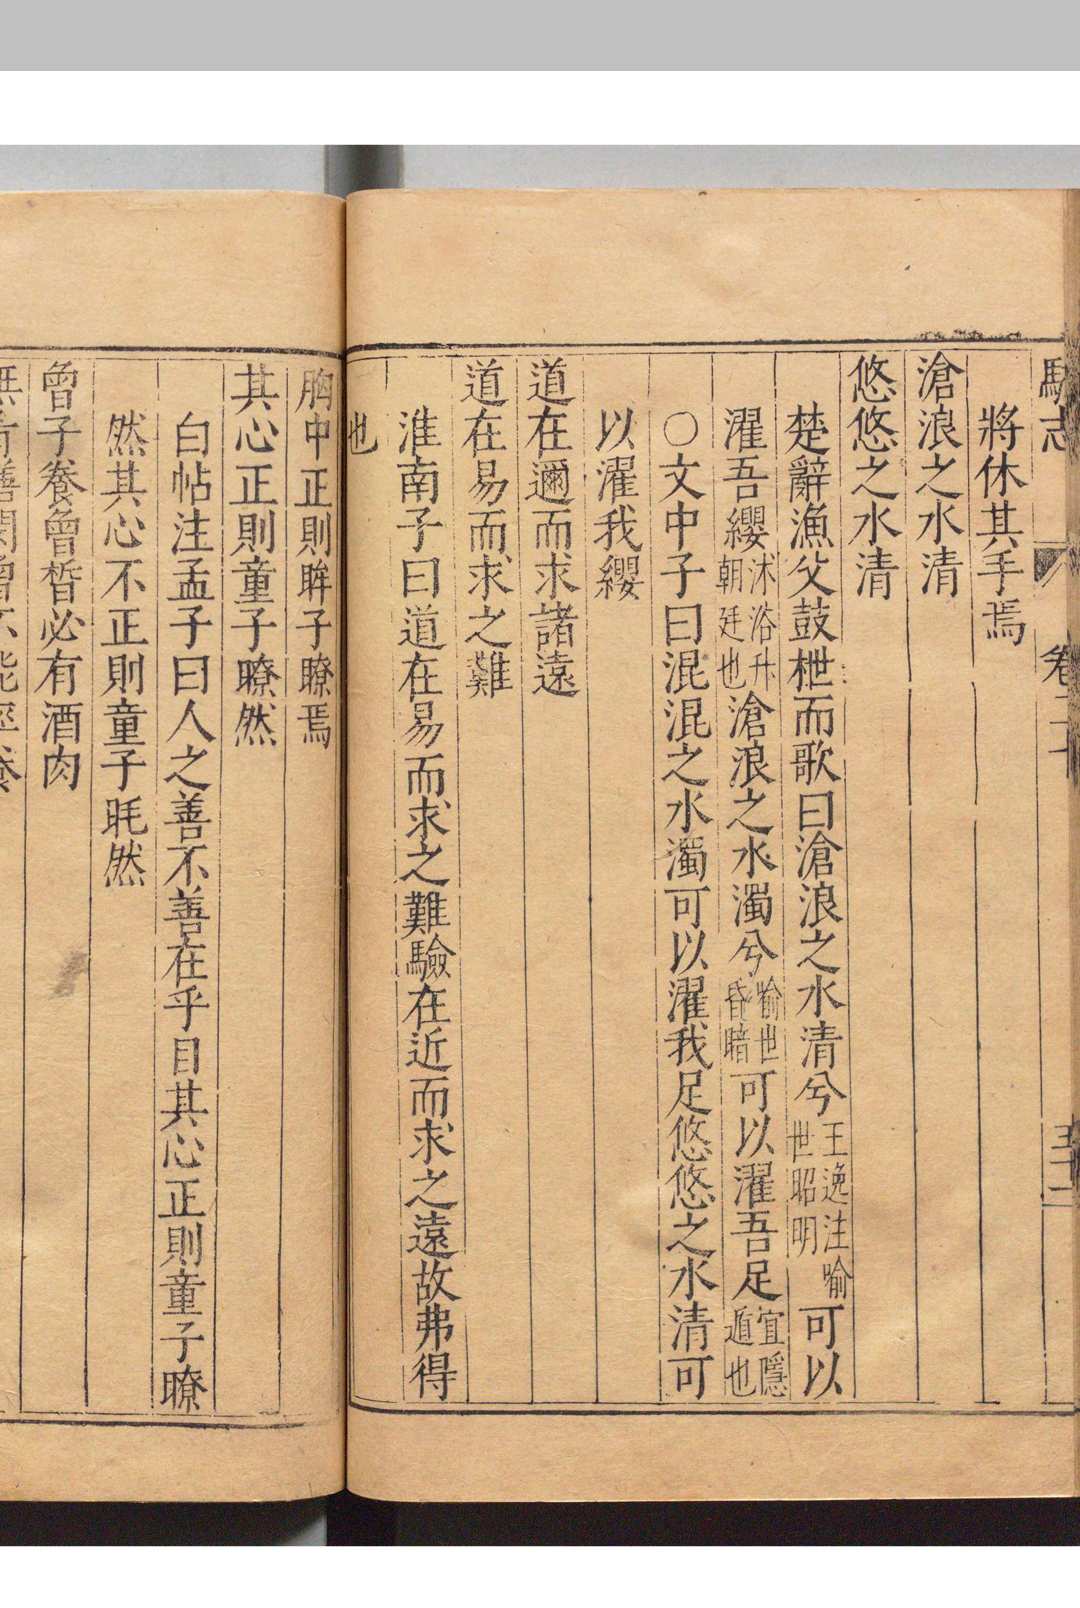 駢志 卷二十 五十二
將休其手焉
滄浪之水清
悠悠之水清
楚辭漁父鼓枻而歌曰滄浪之水清兮王逸注喻世昭明可以
濯吾纓沐浴升朝廷也滄浪之水濁兮喻世昏暗可以濯吾足宜隱遁也
○文中子曰混混之水濁可以濯我足悠悠之水清可
以濯我纓
道在邇而求諸遠
道在易而求之難
淮南子曰道在易而求之難驗在近而求之遠故弗得
也
胸中正則眸子瞭焉
其心正則童子瞭然
白帖注孟子曰人之善不善在乎目其心正則童子瞭
然其心不正則童子眊然
曾子養曾晳必有酒肉